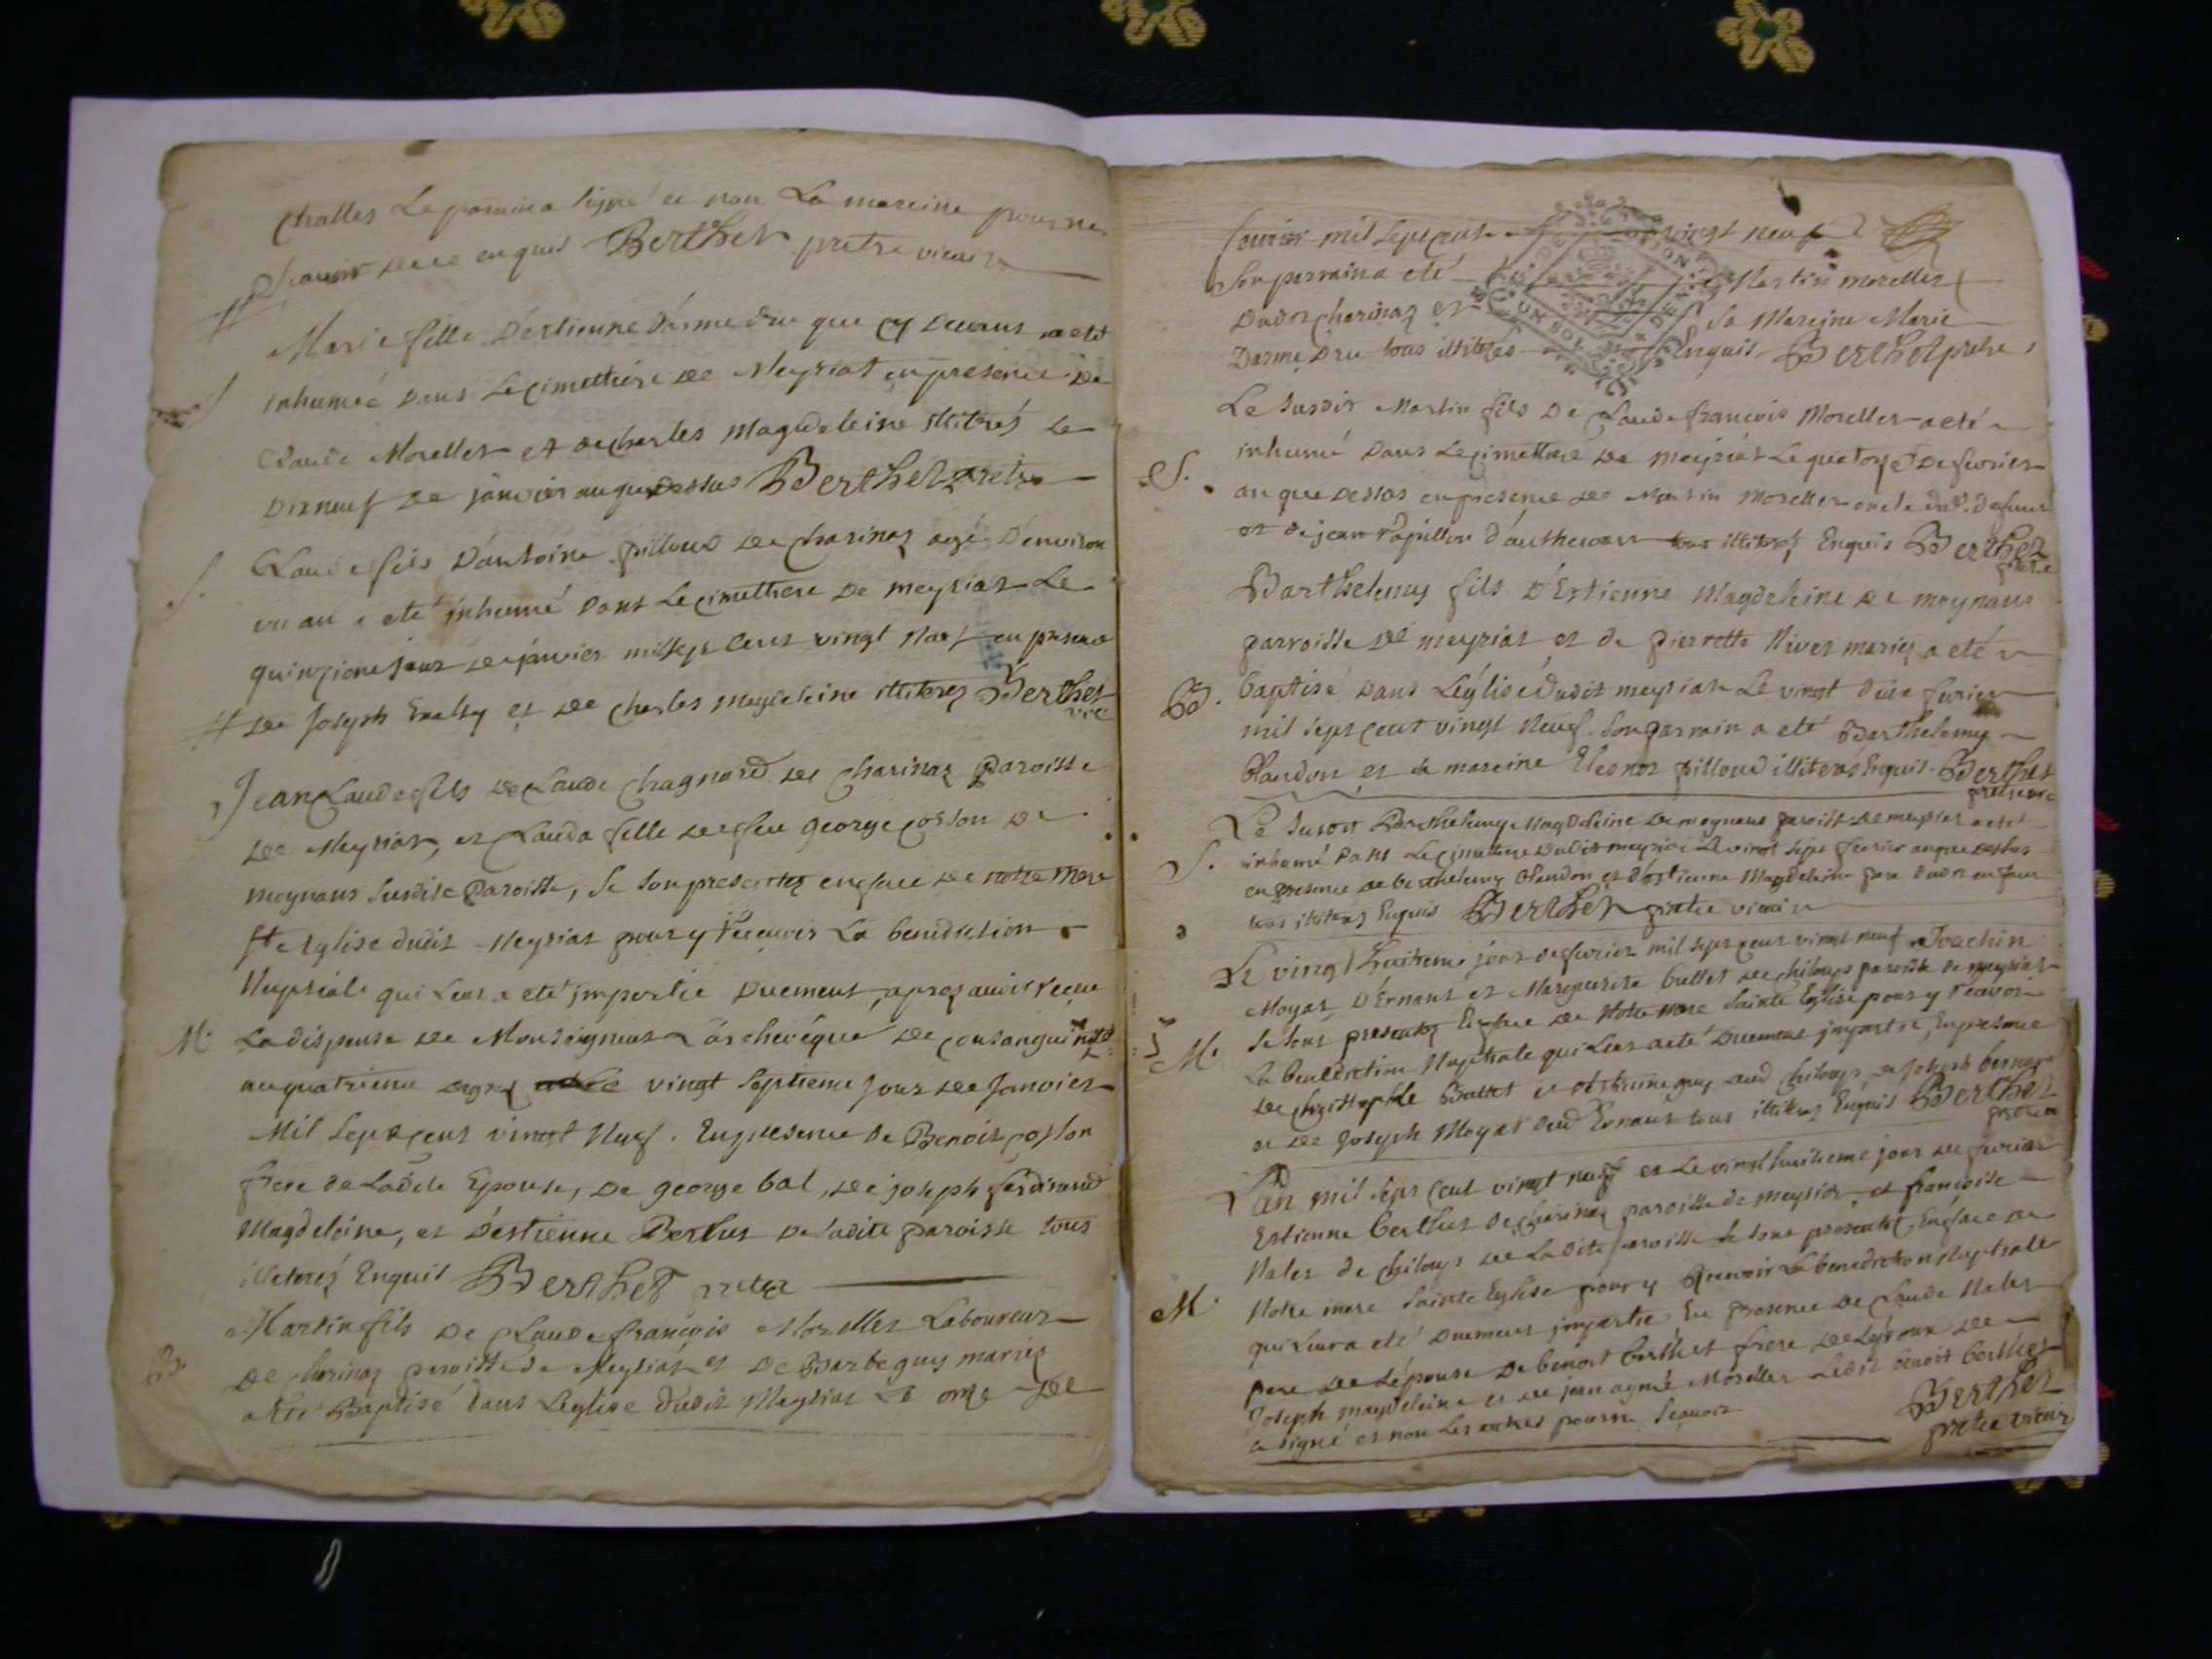 Challes Le parain a signé et non La mareine pour ne
Scavoir de ce enquis Berthet pretre vicaire
Marie fille D'estienne Darmedru que cy Devant a eté
S
inhumée Dans Le cimettiere de Meyriat en presence de
Claude Morellet et de Charles Magdeleine illitrés Le
Dixneuf de janvier an que Dessus Berthet pretre
Claude fils D'antoine pilloud de Charinaz agé D'environ
S.
un an a eté inhumé Dans Le cimettiere De meyriat Le
quinzieme jour de janvier mil sept cent vingt Neuf en presence
# de Joseph et de Charles Magdeleine illiterez Berthet
vic
Jean Claude fils de Claude Chagnard de Charinaz Paroisse
de Meyriat, et Clauda fille de feu George cosson de
moynans susdite Paroisse, se son presentez en face de notre Mere
Ste Eglise dudit Meyriat pour y recevoir La benediction
Nuptiale qui Leur a eté impartie Duement, aprez avoir reçue
M.
La dispense de Monseigneur L'archevêque de consanguinité
au quatrieme degrez vingt septieme jour de Janvier
Mil sept cent vingt Neuf. En presence de Benoit cosson
frere de Ladte Epouse, de George bal, de joseph ferdinand
Magdeleine, et D'estienne Berthet de Ladite paroisse tous
illeterez Enquis Berthet pretre
Martin fils De Claude françois Morellet Laboureur
B.
de Charinaz paroisse de Meyriat et De Barbe guy mariez
a eté Baptisé Dans L'eglise dudit Meyriat Le onze de
fevrier mil sept cent vingt neuf
Son parrain a eté Martin morellet
Dudit Charinaz et Sa Mareine Marie
Darmedru tous illiterés Enquis Berthet pretre
UN SOL
Le susdit Martin fils De Claude françois Morellet a eté
inhumé Dans Le cimettiere de meyriat Le quatorze De fevrier
S.
an que Dessus en presence de Martin Morellet oncle dud. defunt
et de jean Papillon d'authecour tous illiterez Enquis Berthet
pretre
Barthelemy fils D'Estienne Magdeleine de moynans
parroisse de meyriat et de pierrette Nivet mariez a eté
B.
baptisé Dans L'églisé Dudit meyriat Le vingt Deux fevrier
mil sept cent vingt Neuf. Son parrain a eté Barthelemy
Blandon et sa mareine Eleonor pilloud illiterés Enquis Berthet
pretre vic
Le susdit Barthelemy Magdeleine de moynans paroisse de meyriat a eté
S.
inhumé Dans Le cimettiere Dudit meyriat Le vingt sept fevrier an que dessus
en presence de Barthelemy Blandon et d'Estienne Magdeleine pere dudit enfant
tous illiterez Enquis Berthet pretre vicaire
Le vingt huitieme jour de fevrier mil sept cent vingt neuf Joachin
Moyat D'Ernans et Marguerite buttet de Chiloup paroisse de meyriat
M.
se sont presentez En face de Notre mere Sainte Eglise pour y recevoir
La benediction Nuptiale qui Leur a eté Duement impartie, En presence
de Christophle Buttet et d'Estienne guy dud Chiloup de Joseph bernard
et de Joseph Moyat dud Ernans tous illiterez Enquis Berthet
pretre
L'an mil sept cent vingt neuf et Le vingt huitieme jour de fevrier
Estienne berthet de Charinaz paroisse de meyriat, et françoise
Nalet de Chiloup de Ladite paroisse se sont presentez En face de
M.
Notre mere Sainte Eglise pour y Recevoir La benediction Nuptiale
qui Leur a eté Duement impartie En presence De Claude Nalet
pere de L'épouse De benoit berthet frere de L'époux de
Joseph magdeleine et de jean aymé Morellet Ledit benoit berthet
a signé et non Les autres pour ne Sçavoir
Berthet
pretre vicair